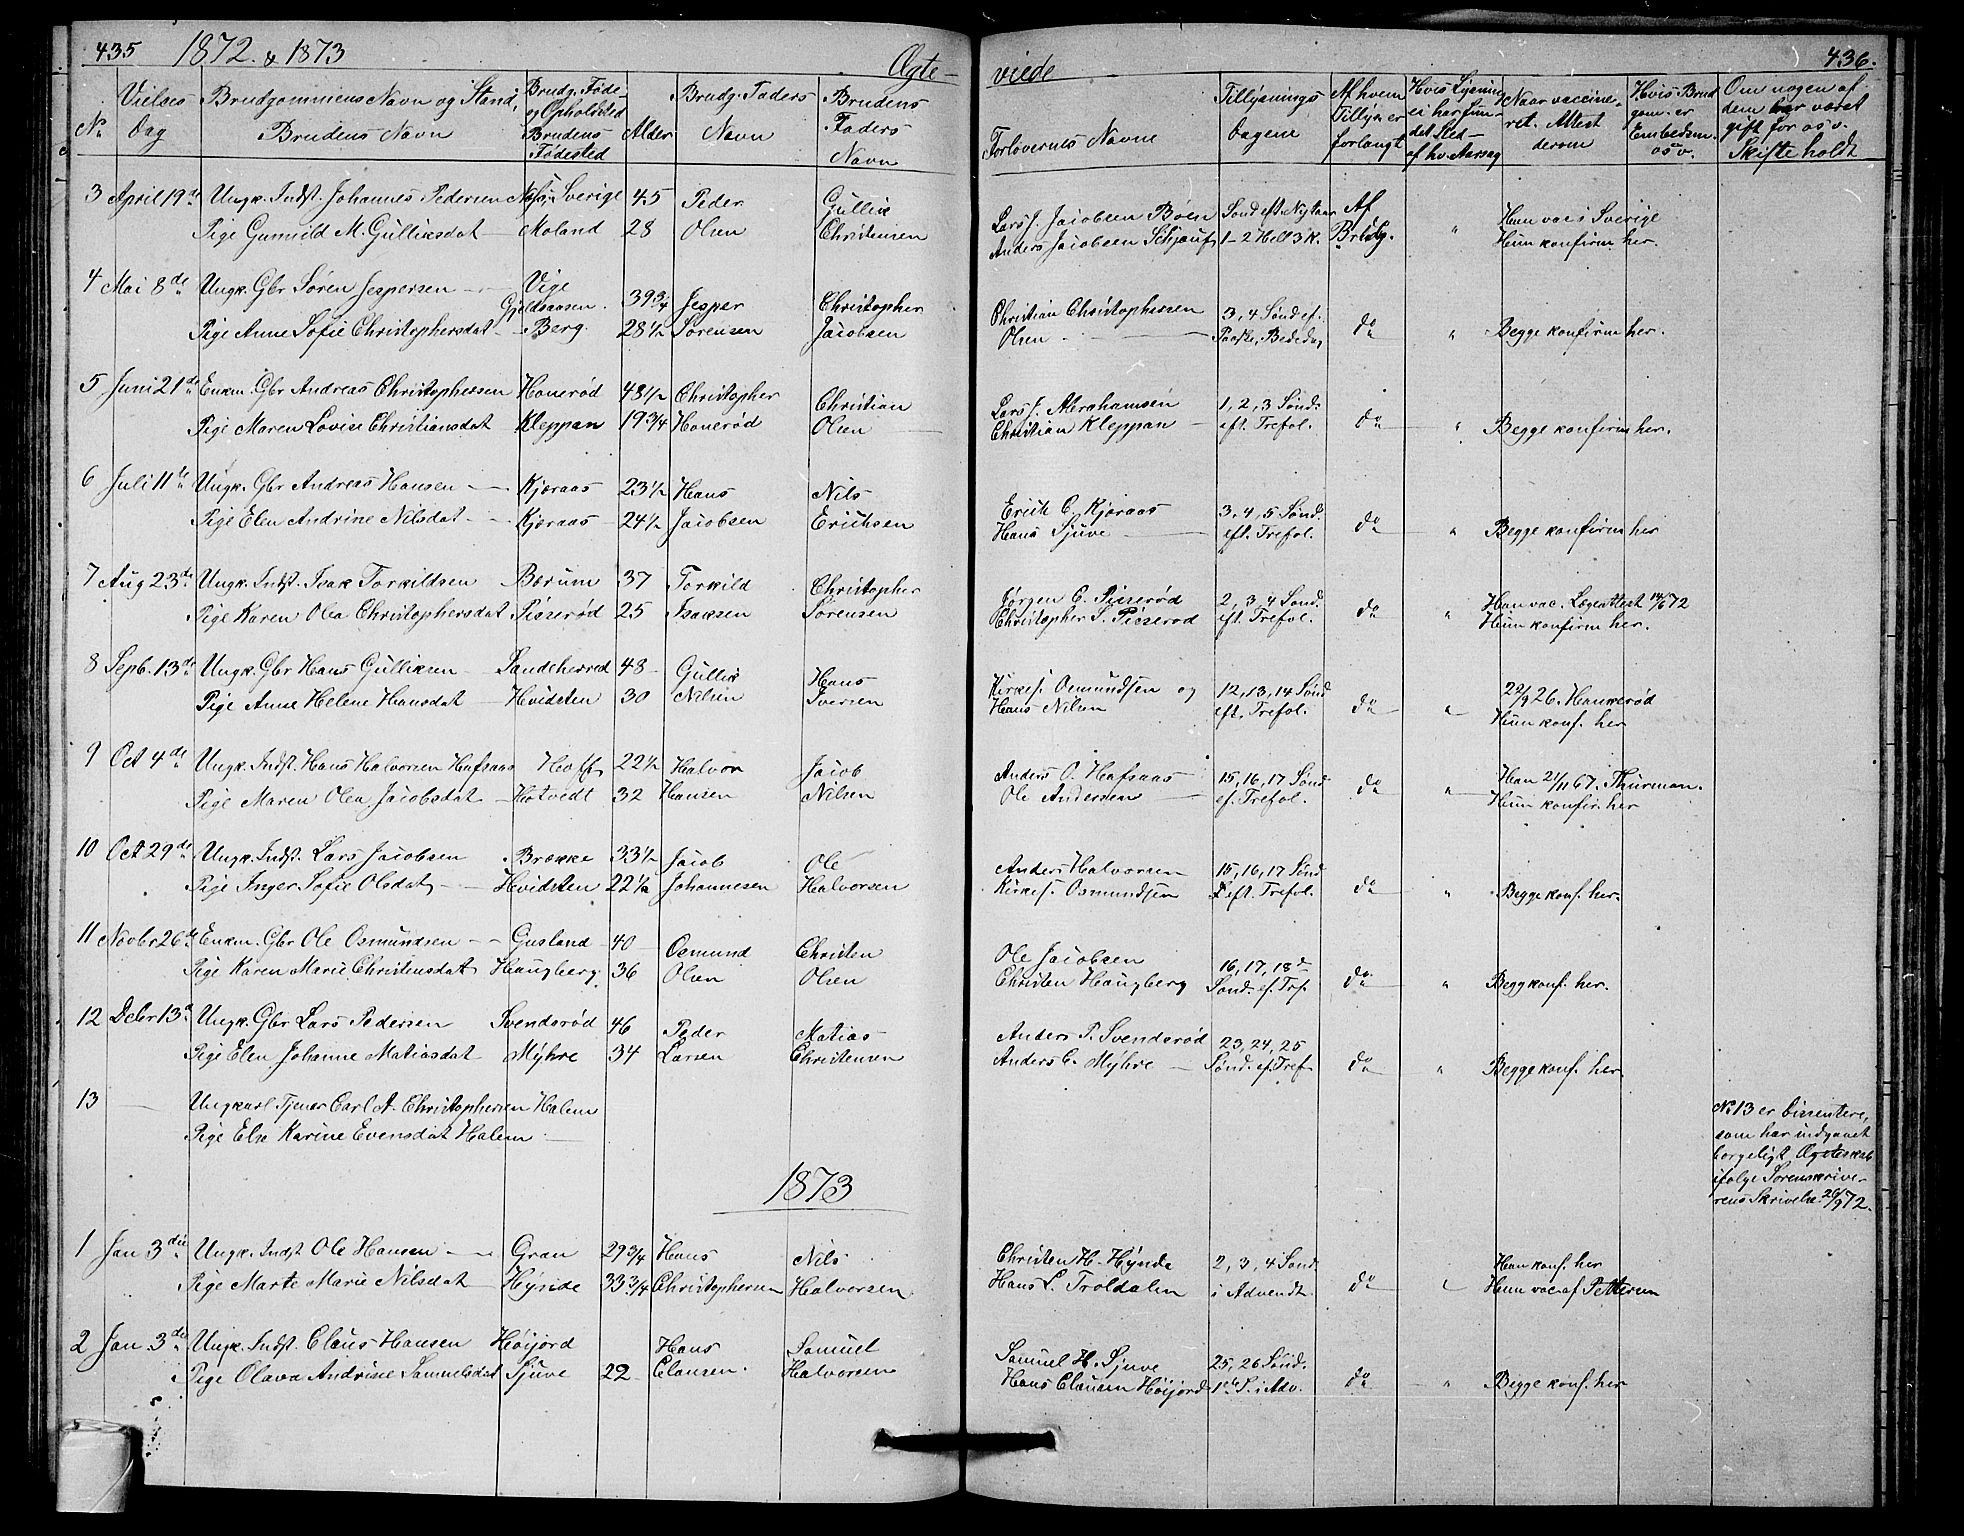 435 1872 & 1873 Ægte-
No
Vielses Dag
Brudgommens Navn og Stand,
Brudens Navn
Brudg. Føde-
og Opholdsted
Brudens
Fødested
Alder
Brudg. Faders
Navn
Brudens
Faders
Navn
3 April 19de Ungk. Indst. Johannes Pedersen Sverige 45 Peder Gullik
Pige Gunnild M. Gulliksdat Moland 28 Olsen Christensen
4 Mai 8de Ungk. Gbr Søren Jespersen Vige
Gjeldsaasen. 39 3/4 Jesper Christopher
Pige Anne Sofie Christophersdat Berg 28 1/2 Sørensen Jacobsen
5 Juni 21de Enkm. Gbr Andreas Christophersen Honerød 48 1/2 Christopher Christian
Pige Maren Lovise Christiansdat Kleppan 19 3/4 Honerød Olsen
6 Juli 11te Ungk. Gbr Andreas Hansen Kjæraas 23 1/2 Hans Nils
Pige Elen Andrine Nilsdat Kjæraas 24 1/2 Jacobsen Erichsen
7 Aug 23de Ungk. Indst. Isak Torkildsen Bærum 37 Torkild Christopher
Pige Karen Olea Christophersdat Pisserød 25 Isaksen Sørensen
8 Sepb. 13de Ungk. Gbr Hans Gulliksen Sandeherred 48 Gullik Hans
Pige Anne Helene Hansdat Hvidsten 30 Nilsen Iversen
9 Oct 4de Ungk. Indst. Hans Halvorsen Hafsaas Hoff 22 1/2 Halvor Jacob
Pige Maren Olea Jacobsdat Hotvedt 32 Hansen Nilsen
10 Oct 29de Ungk. Indst. Lars Jacobsen Brække 33 1/2 Jacob Ole
Pige Inger Sofie Olsdat Hvidsten 22 1/2 Johannesen Halvorsen
11 Novbr 26de Enkm. Gbr Ole Osmundsen Gusland 40 Osmund Christen
Pige Karen Marie Christensdat Haugberg 36 Olsen Olsen
12 Debr 13de Ungk. Gbr Lars Pedersen Svenderød 46 Peder Matias
Pige Elen Johanne Matiasdat Myhre 34 Larsen Christensen
13 Ungkarl Tjener Carl A. Christophersen Halem
Pige Else Karine Evensdat Halem
1873
1 Jan 3die Ungk. Indst Ole Hansen Gran 29 3/4 Hans Nils
Pige Marte Marie Nilsdat Hynde 33 3/4 Christophersen Halvorsen
2 Jan 3die Ungk. Indst. Claus Hansen Høijord Hans Samuel
Pige Olava Andrine Samuelsdat Sjuve 22 Clausen Halvorsen
viede 436.
Forlovernes Navne
Tillysnings
Dagene
Af hvem
Tillysn. er
forlangt
Hvis Lysning
ei har fun-
det Sted -
af hv. Aarsag
Naar vaccine-
ret. Attest
derom
Hvis Brud
gom. er
Embedsm.
osv.
Om nogen af
dem har været
gift før osv.
Skifte holdt
Lars J. Jacobsen Bøen Sønd eft. Nytaar Af Han vac i Sverige
Anders Jacobsen Schjauf 1-2 Hell 3 K. Brudg. " Hun konfirm her.
Christian Christophersen 3, 4 Sønd ef.
Olsen Paaske, Bededag do " Begge konfirm her.
Lars J. Abrahamsen 1, 2, 3 Sønd.
Christian Kleppan eft. Trefol. do " Begge konfirm her.
Erich C. Kjæraas 3, 4, 5 Sønd.
Hans Sjuve eft. Trefol. do " Begge konfirm her
Jørgen C. Pisserød 2, 3, 4 Sønd. Han vac. Lægeattest 14/6 72
Christopher S. Pisserød eft. Trefol. do " Hun konfirm her.
Kirkes. Osmundsen og 12, 13, 14 Sønd 22/9 26. Hankerød
Hans Nilsen eft. Trefol. do " Hun konf. her
Anders O. Hafsaas 15, 16, 17 Sønd Han 21/11 67. Thurman.
Ole Andersen ef. Trefol. do " Hun konfir. her
Anders Halvorsen 15, 16, 17 Sønd
Kirkes. Osmundsen eft. Trefol. do " Begge konf. her.
Ole Jacobsen 16, 17, 18de
Christen Haugberg Sønd. ef. Trf. do " Begg konf. her.
Anders P. Svenderød 23, 24, 25
Anders C. Myhre Sønd. ef. Tref do " Begge konf. her
No 13 er Dissentere,
som har indgaaet
borgeligt Ægteskab
ifølge Sorenskrive-
rens Skrivelse 26/9 72.
Christen H. Hynde 2, 3, 4 Sønd. Han konf. her
Hans L. Troldalen i Advendt do " Hun vac af Pettersen
Samuel H. Sjuve 25, 26 Sønd.
Hans Clausen Høijord 1ste S. i Adv. do " Begge konf. her